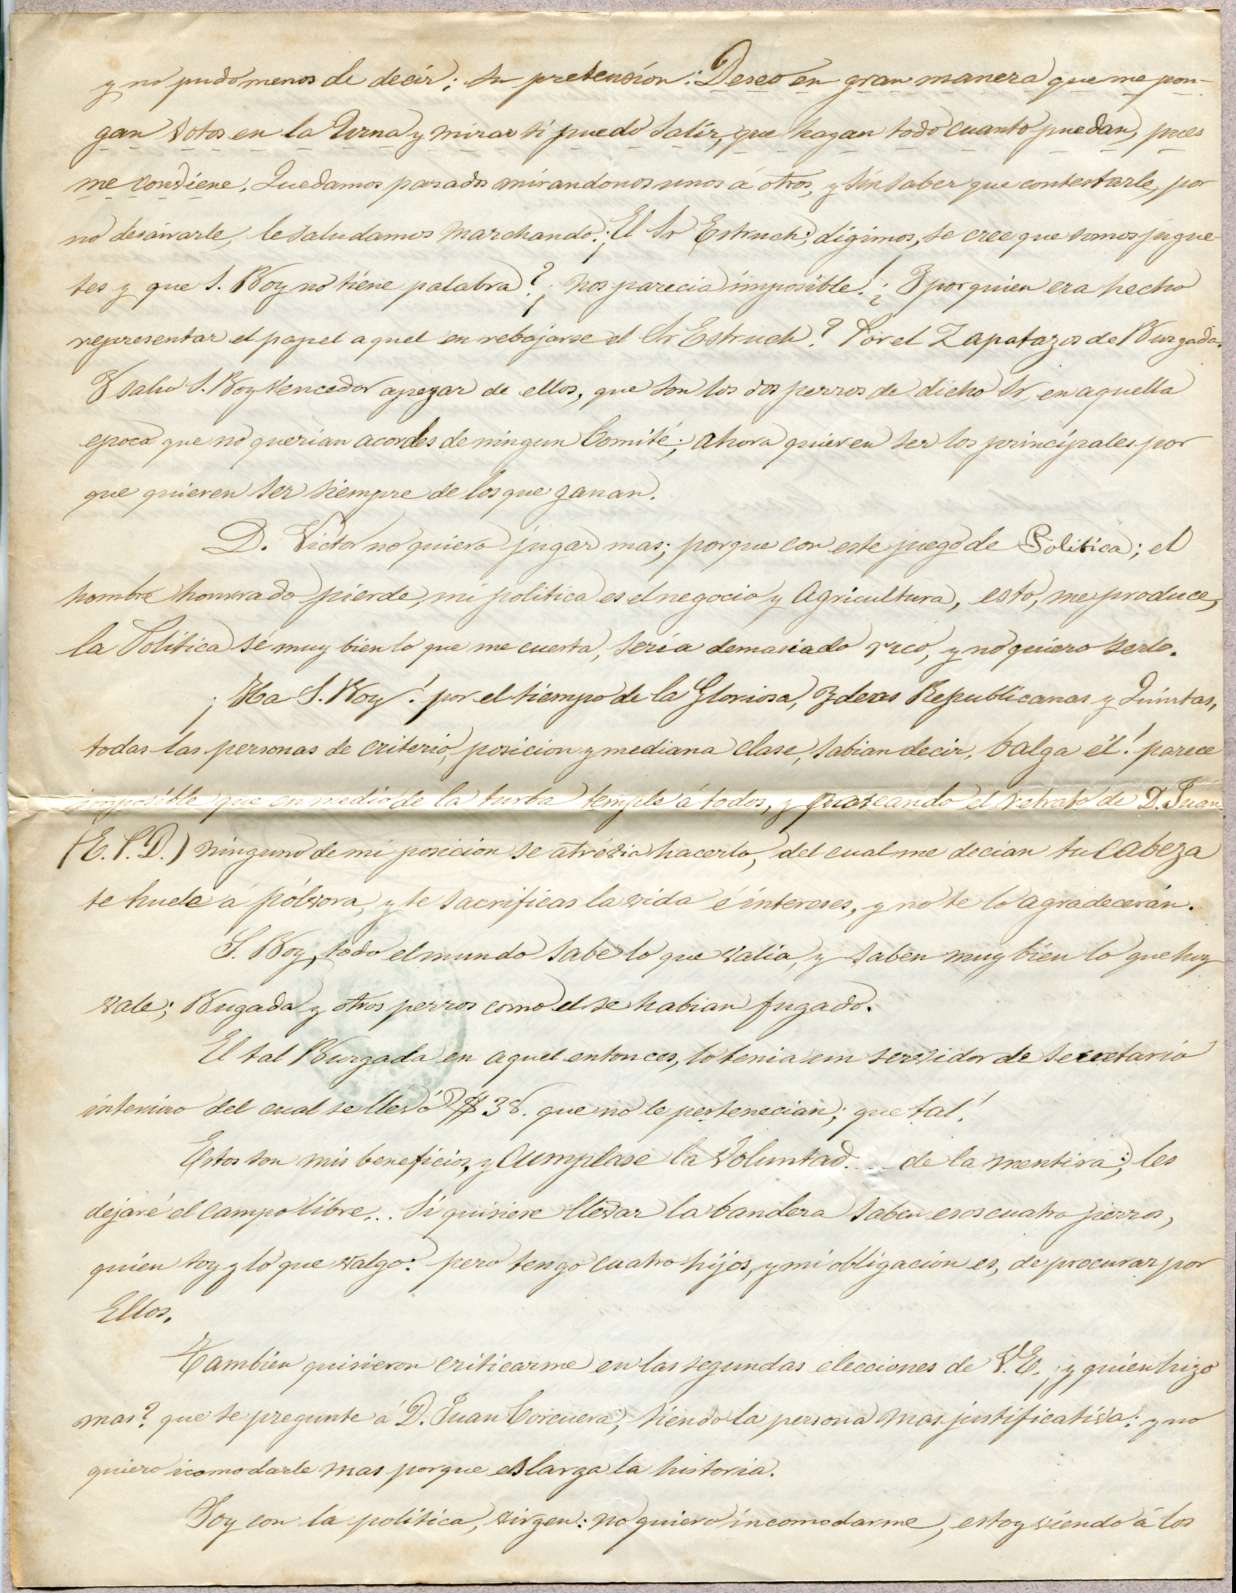 y no pudo menos de decir; su pretensión: Deseo en gran manera que me pon-
gan votos en la Urna y mirar si puedo salir, que hagan todo cuanto puedan, pues
me conviene. Quedamos parados mirandonos unos á otros, y sin saber que contestarle, por
no desairarle, le saludamos marchando: ¡El Sr Estruch; digimos, se cree que somos jugue-
tes y que S. Roy no tiene palabra? ¡nos parecia imposible! ¿Y por quien era hecho
representar el papel aquel en rebajarse el Sr Estruch? Por el Zapatazos de Burgada.
Y salio S. Roy vencedor apezar de ellos, que son los dos perros de dicho Sr, en aquella
epoca que no querian acordes de ningun Comité; ahora quieren ser los principales por
que quieren ser siempre de los que ganan.
D. Victor no quiero jugar mas; porque con este juego de Politica; el
hombre honrado pierde, mi politica es el negocio y Agricultura, esto, me produce,
la Politica sé muy bien lo que me cuesta, seria demasiado rico, y no quiero serlo.
¡Ha S. Roy! por el tiempo de la Gloriosa, Ydeas Republicanas y Quintas,
todas las personas de criterio, posicion y mediana clase, sabian decir, balga él! parece
imposible que en medio de la turba temple á todos, y paseando el retrato de D. Juan
(E. P. D.) ninguno de mi posicion se atrévia hacerlo, del cual me decian tu cabeza
te huele a pólvora, y te sacrificas la vida é intereses, y no te lo agradecerán.
S. Roy, todo el mundo sabe lo que valia, y saben muy bien lo que hoy
vale; Bugada y otros perros como el se habian fugado.
El tal Burgada en aquel entonces, lo tenia un servidor de secretario
interino del cual se llevó $ 38. que no le pertenecian; que tal!
Estos son mis beneficios, y Cumplase la Voluntad.... de la mentira; les
dejaré el campo libre... Si quisiere llevar la bandera saben esos cuatro perros,
quien soy y lo que valgo: pero tengo cuatro hijos, y mi obligación es, de procurar por
Ellos.
Tambien quisieron criticarme en las segundas elecciones de V.E., y quien hizo
mas? que se pregunte á D. Juan Corcuera, siendo la persona mas justificativa: y no
quiero icomodarle mas porque es larga la historia.
Soy con la política, virgen: no quiero incomodarme, estoy viendo á los